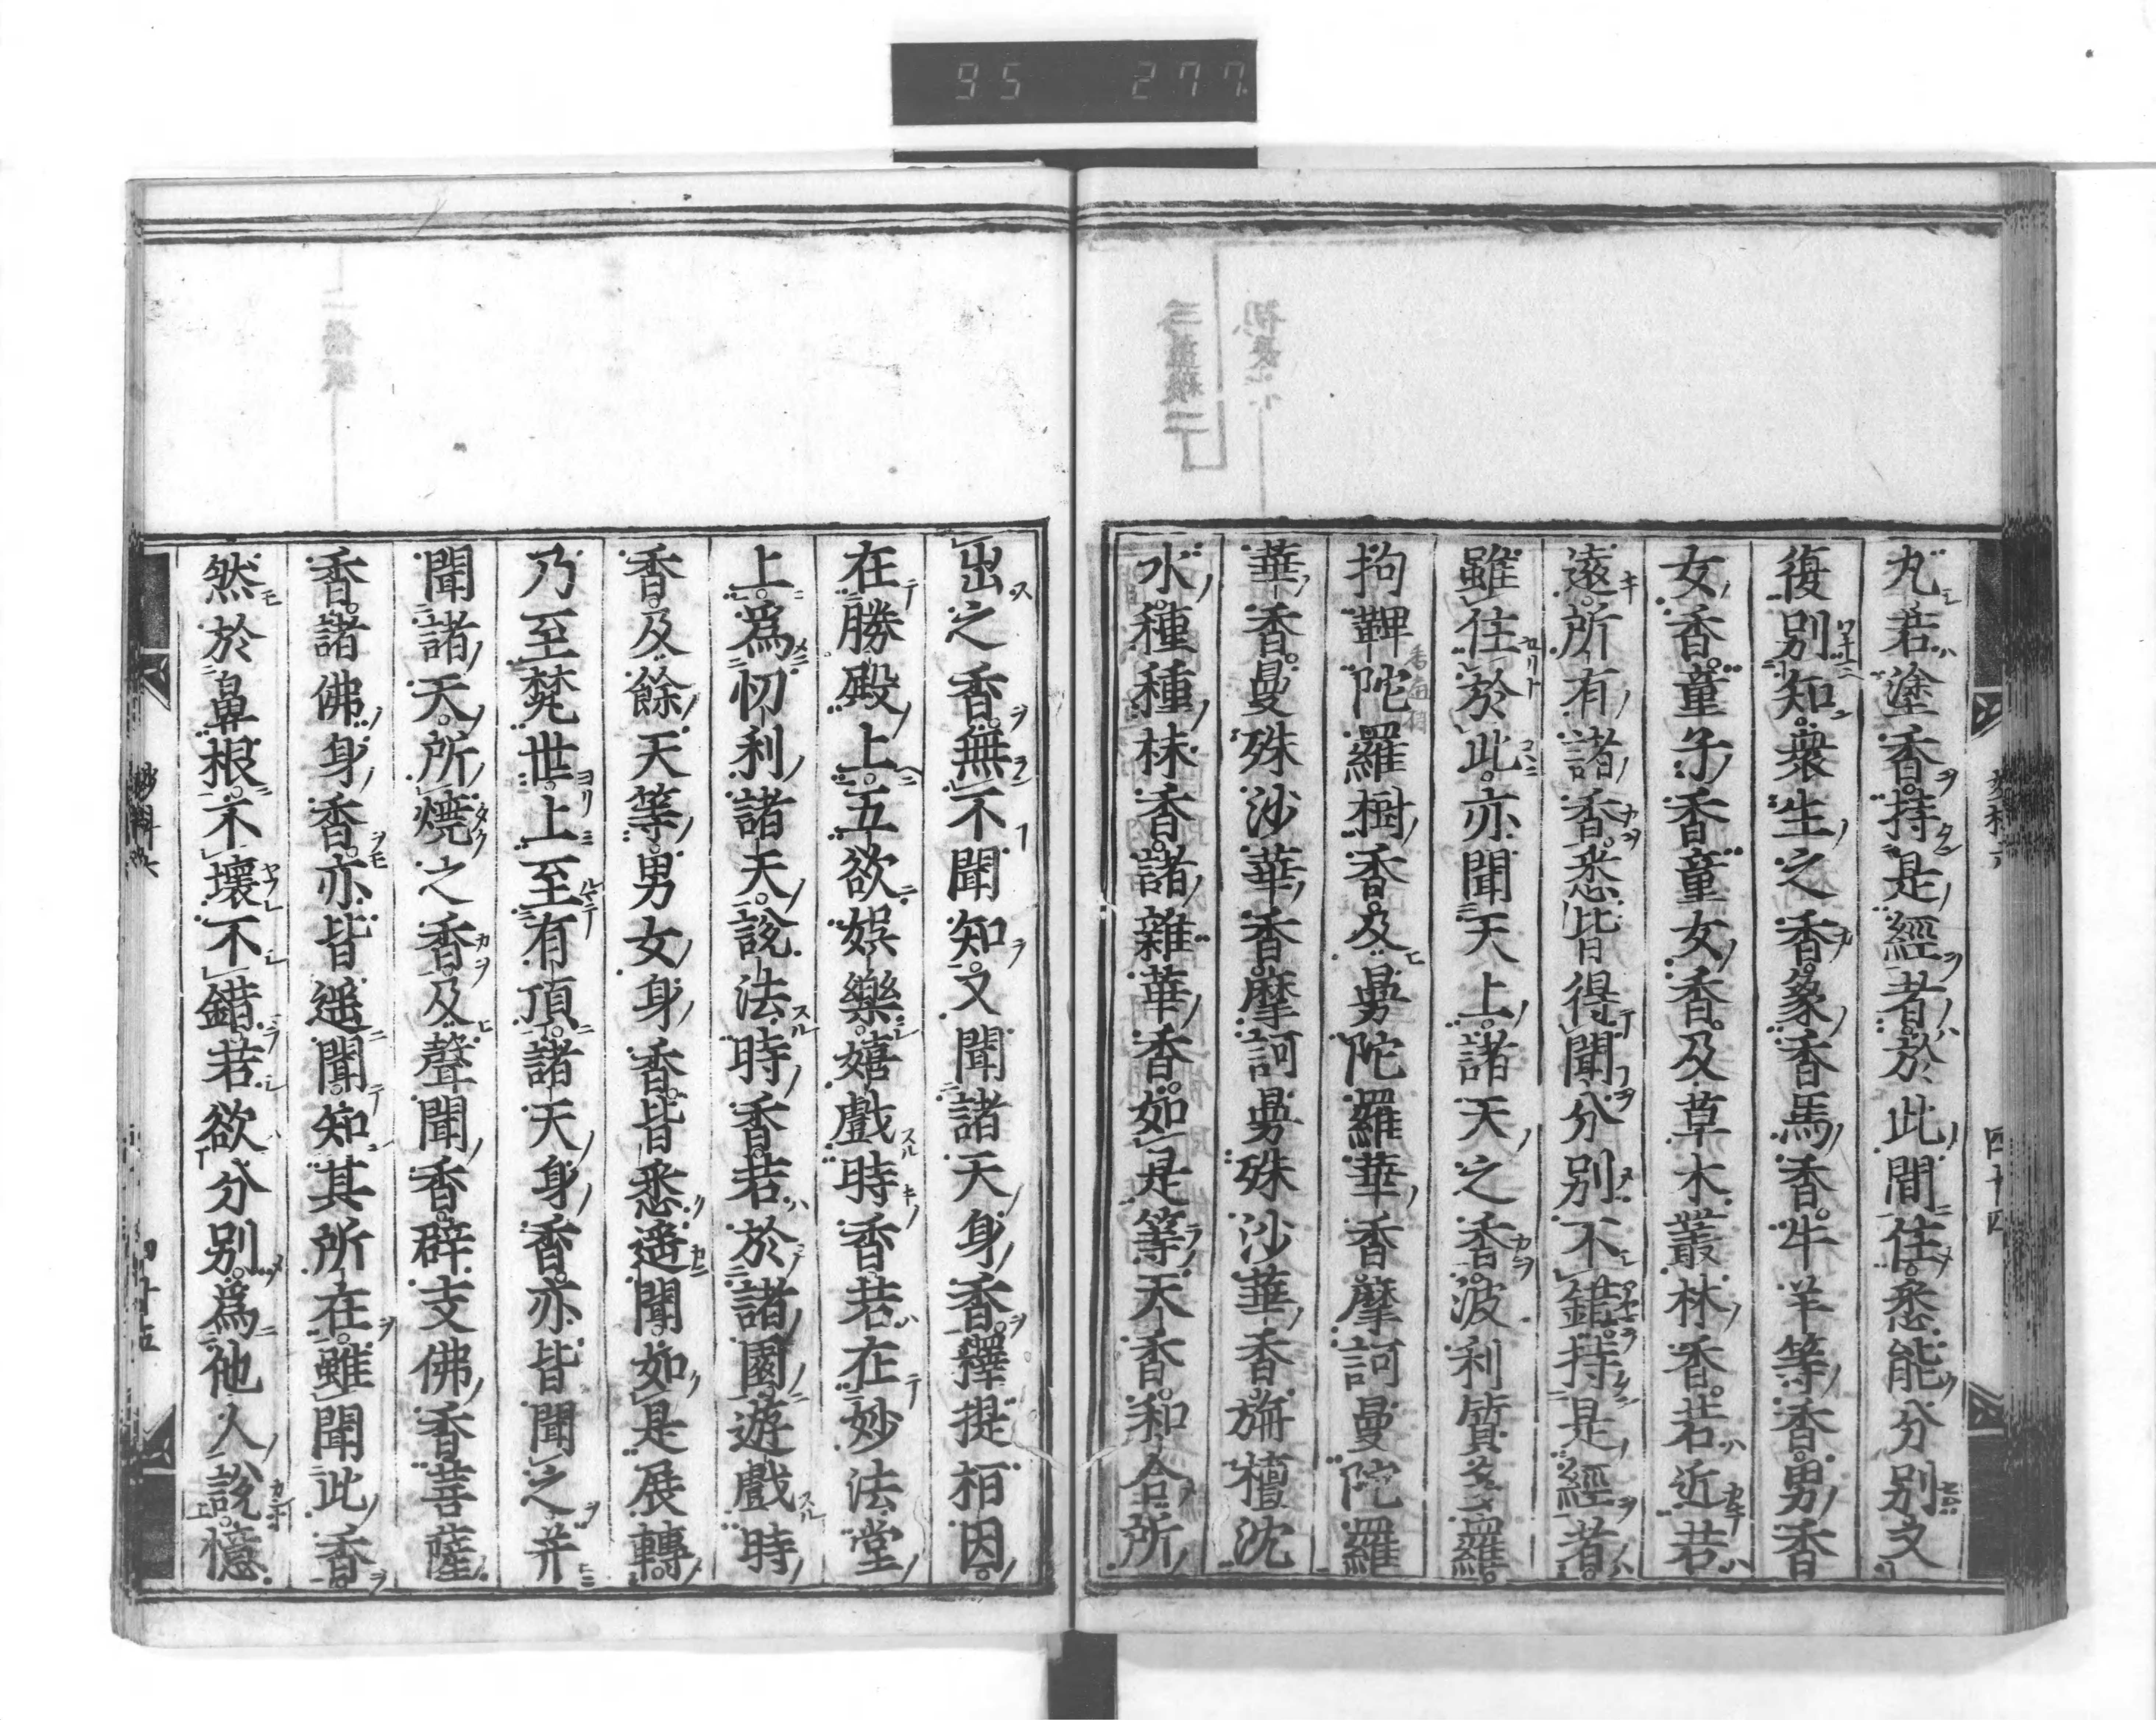 95 277
丸若塗香持是經者於此間住悉能分別又
復別知衆生之香象香馬香牛羊等香男香
女香童子香童女香及草木叢林香若近若
遠所有諸香悉皆得聞分別不錯持是經者
雖住於此亦聞天上諸天之香波利質多羅
拘鞞陀羅樹香及曼陀羅華香摩訶曼陀羅
華香曼殊沙華香摩訶曼殊沙華香旃檀沈
水種種抹香諸雜華香如是等天香和合所
出之香無不聞知又聞諸天身香釋提桓因
在勝殿上五欲娯樂嬉戲時香若在妙法堂
上爲忉利諸天說法時香若於諸園遊戲時
香及餘天等男女身香皆悉遥聞如是展轉
乃至梵世上至有頂諸天身香亦皆聞之并
聞諸天所燒之香及聲聞香辟支佛香菩薩
香諸佛身香亦皆遥聞知其所在雖聞此香
然於鼻根不壞不錯若欲分別爲他人說憶
四十四
四十五